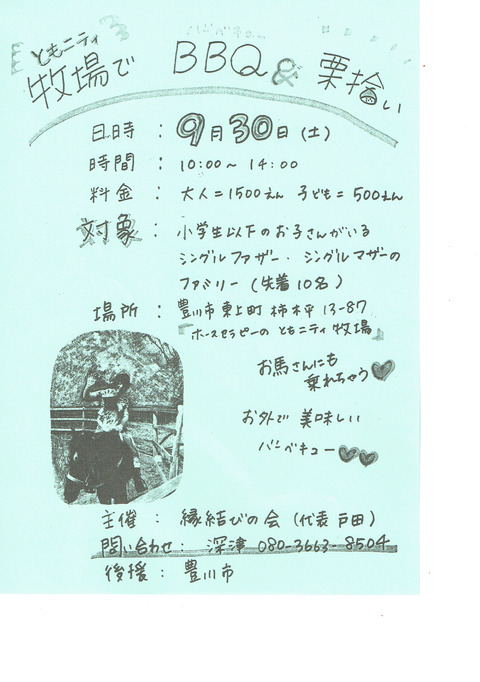 ともニティ
牧場で BBQ & 栗拾い
日時 : 9月30日(土)
時間 : 10:00〜14:00
料金 : 大人=1500えん 子ども=500えん
対象 : 小学生以下のお子さんがいる
シングルファザー・シングルマザーの
ファミリー(先着10名)
場所 : 豊川市東上町柿木平13-87
「ホースセラピーのともニティ牧場」
お馬さんにも
乗れちゃう
お外で美味しい
バーベキュー
主催 : 縁結びの会(代表 戸田)
問い合わせ : 深津 080-3663-8504
後援 : 豊川市